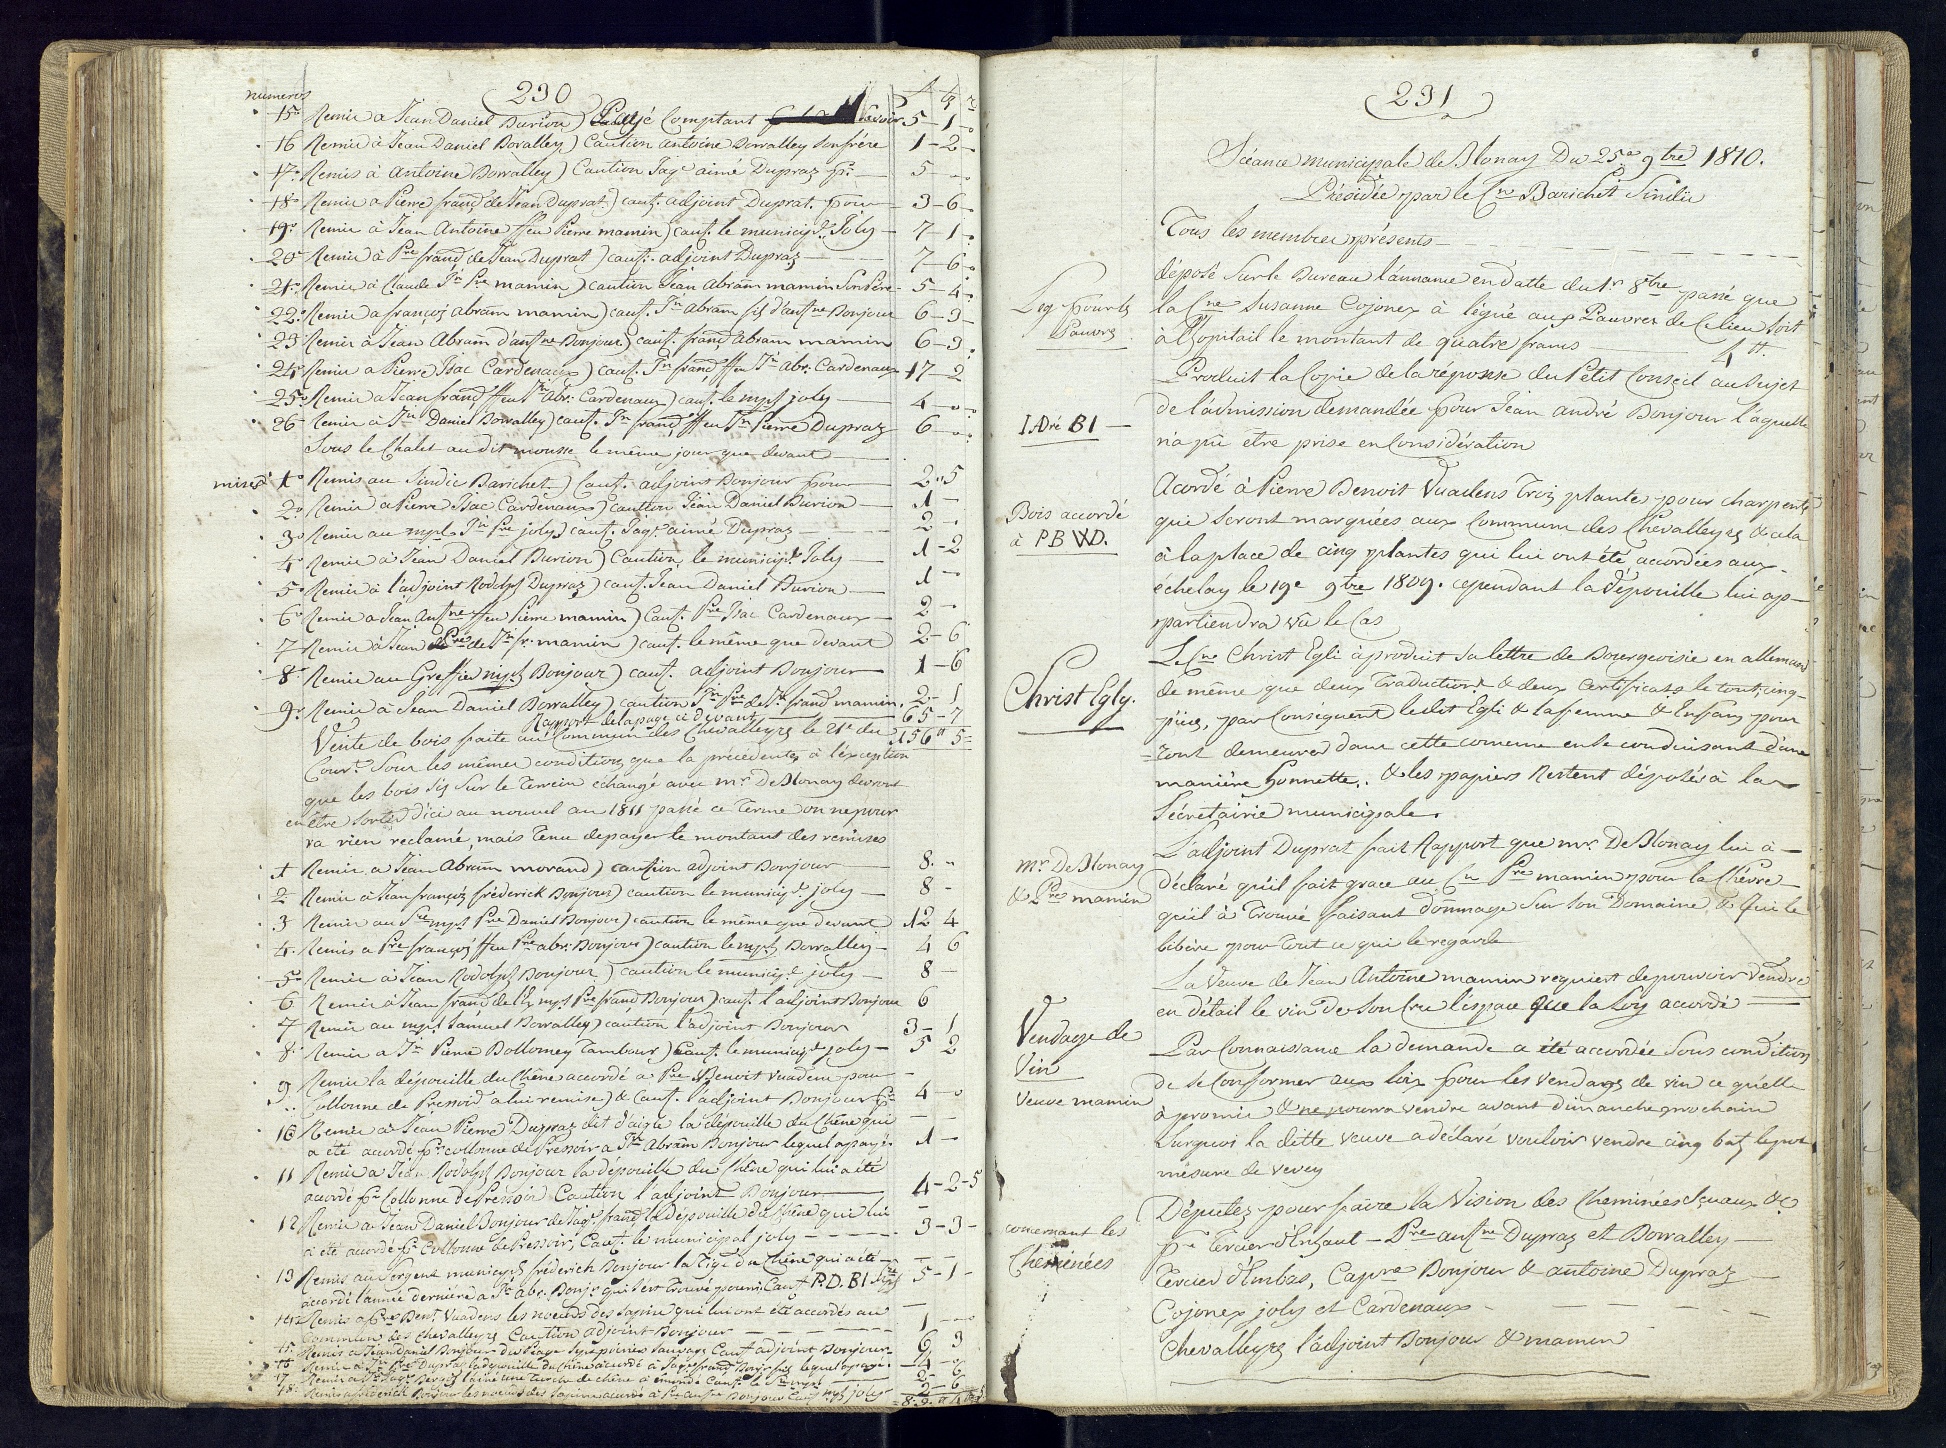 numeros
230
15o Remis à Jean Daniel Burion) Payé Comptant 5-1-
16 Remis à Jean Daniel Bovalley) Caution antoine Bovalley son frère 1-2-
17o Remis à antoine Bovalley) Caution Jaqs aimé Dupraz pr. 5
18o Remis a Pierre franç de Jean Duprat) caut. adjoint Duprat. pour 3-6-
19o Remis à Jean Antoine ffeu Pierre mamin) caut. le municipl Joly 7-1-
20o Remis à Pre franç de Jean Duprat) caut. adjoint Dupraz 7-6-
21o Remis à Claude Jn Pre mamin) caution Jean Abram mamin Son frère 5-4-
22o Remis a françois abram mamin) caut. Jn abram fils d'antne Bonjour 6-3-
23 Remis à Jean Abram d'antne Bonjour) caut. franç abram mamin 6-3
24o Remis a Pierre Isac Cardenaux) caut. Jn franç ffeu Jn abr. Cardenaux 17-2
25o Remis à Jean franç ffeu Jn Abr. Cardenaux) caut. le mpl joly 4
26 Remis à Jn Daniel Bovalley) caut. Jn franç ffeu Jn Pierre Dupraz 6
Sous le Chalet au dit mousse le même jour que devant
mises 1o Remis au Sindic Barichet) Caut. adjoint Bonjour pour 2-5
2o Remis a Pierre Isac Cardenaux) caution Jean Daniel Burion 1-
3o Remis au mpl Jn Pre joly) caut. Jaqs aimé Dupraz 2
4o Remis à Jean Daniel Burion) Caution le municipl Joly 1-2
5o Remis à l'adjoint Rodolph Dupraz) caut. Jean Daniel Burion 1-
6o Remis a Jean Antne ffeu Pierre mamin) Caut. Pre Isac Cardenaux 2-
7 Remis à Jean Pre de Jn fr. mamin) caut. le même que devant 2-6
8o Remis au Greffier mpl Bonjour) caut. adjoint Bonjour 1-6
9o Remis à Jean Daniel Bovalley) caution Jn Pre de Jn franç mamin. 2-1
Rapport de la page ci devant 65-7
Vente de bois faite au Commun des Chevalleyres le 21e du 156 tt 5
Cour.t Sous les mêmes conditions que la précédente, à l'exception
que les bois sis sur le Terrein échangé avec mr. De Blonay devront
en être sortis d'ici au nouvel an 1811 passé ce terme on ne pour
ra rien reclamé, mais tenu depayer le montant des remises
1 Remis a Jean Abram morand) caution adjoint Bonjour 8-
2 Remis à Jean françois fréderick Bonjour) caution le municipl joly 8-
3 Remis au Sre mpl Pre Daniel Bonjour) caution le même que devant 12 4
4 Remis a Pre françois ffeu Pre abr. Bonjour) caution le mpl Bovalley 4 6
5o Remis à Jean Rodolph Bonjour) caution le municipl joly 8-
6 Remis à Jean franç de l'Ex mpl Pre franç Bonjour) caut. l'adjoint Bonjour 6
7 Remis au mpl Samuel Bovalley) caution l'adjoint Bonjour 3-1
8 Remis a Jn Pierre Dollomey Tambour) Caut. le municipl joly 5 2
9 Remis la dépouille du Chêne accordé a Pre Benoit Vuadens pour
Collonne de Pressoir a lui remise) & Caut. l'adjoint Bonjour 4-
10 Remis à Jean Pierre Dupraz dit d'aigle la dépouille du Chêne qui
a été accordé pr. collonne de Pressoir a Jn Abram Bonjour lequel a payé 1-
11 Remis à Jean Rodolph Bonjour la dépouille du Chêne qui lui a été
accordé pr Collonne de Pressoir Caution l'adjoint Bonjour 4-2-5
12 Remis a Jean Daniel Bonjour de Jaqs franç la dépouille du Chêne qui lui
a été accordé pr Collonne de Pressoir, Caut. le municipal joly 3-3-
13 Remis au Sergent municipl fréderich Bonjour la tige du Chêne qui a été
accordé l'année dernière a Jn abr. Bonjr qui s'est trouvé pourri Caut P.D.BJ 5-1-
14 Remis a Pre Bent Vuadens les noeuds des Sapins qui lui ont été accordés au
Commun des Chevalleyres Caution adjoint Bonjour 1
15 Remis a Jean Daniel Bonjour du Péage Caut adjoint Bonjour 6 3
16 Remis a Jn Pre Dupraz la dépouille du Chêne accordé à Jaqs franç Bonjr lequel a payé 4
17 2-6
18 Remis a fréderick Bonjour les noeuds des Sapins accordé à Pre antne Bonjour Caut mpl joly 2-6
231
Séance municipale de Blonay Du 25e 9bre 1810.
Présidée par le Cn Barichet Sindic
Tous les membres présents
Leg. pour les
Pauvres
déposé Sur le Bureau l'annance en datte du 1r 8bre passé que
la Cne Susanne Cojonex à légué aux Pauvres de Ce lieu Soit
à l'hopitail le montant de quatre francs 4 tt.
J. Dré BJ
Produit la Copie de la réponse du Petit Conseil au Sujet
de l'admission demandée pour Jean andré Bonjour laquelle
n'a pû etre prise en Considération
Bois accordé
à P B VD.
Acordé à Pierre Benoit Vuadens Trois plantes pour charpente
que Seront marquées aux Commun des Chevalleyres & cela
à la place de cinq plantes qui lui ont été accordées aux
échelay le 19e 9bre 1809. cependant la Dépouille lui ap-
partiendra vû le Cas
Christ Egly.
Le Cne Christ Egli à produit Sa lettre de Bourgeoisie en allemand
de même que deux Traductions & deux certificats le tout cinq
pièces, par Conséquent le dit Egli & la femme & Enfans pour
ront demeurer dans cette comune en se conduisant d'une
manière honnette. & les papiers Restent déposés à la
Sécretairie municipale.
mr. De Blonay
& Pre mamin
L'adjoint Duprat fait Rapport que mr. De Blonay lui à
déclaré qu'il fait grace au Cn Pre mamin pour la Chévre
qu'il à Trouvé faisant dommage Sur Son Domaine, & qui le
libère pour Tout ce qui le regarde
Vendage de
Vin
veuve mamin
La Veuve de Jean Antoine mamin requiert de pouvoir Vendre
en détail le vin de Son Cru l'espace que la Loy accorde
Par Connaissance la demande a été accordée Sous condition
de Se Conformer aux loix pour les Vendages de vin ce qu'elle
à promis & ne pourra vendre avant dimanche prochain
Surquoi la ditte veuve a déclaré vouloir vendre cinq batz le pot
mésure de vevey
concernant les
Cheminées
Députés pour faire la Vision des Cheminées &c
pr Tercier d'Enhaut - Pre antne Dupraz et Bovalley
Tercier d'Embas, Capne Bonjour & antoine Dupraz
Cojonex joly et Cardenaux
Chevalleyres l'adjoint Bonjour & mamin